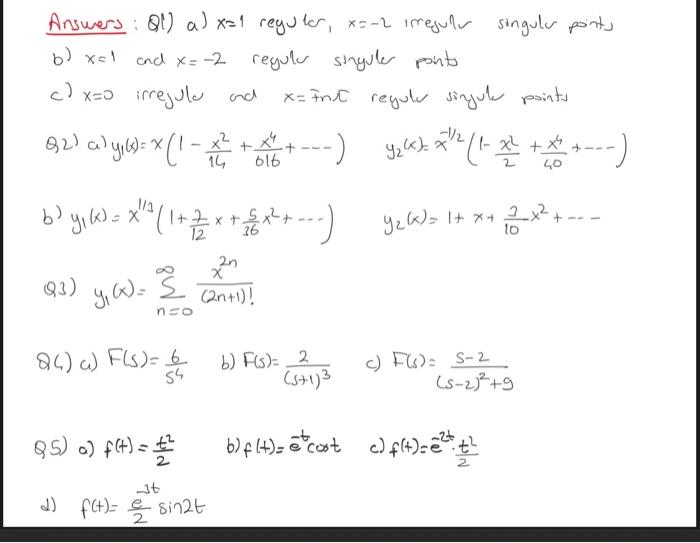 Answers : Q1) a) x=1 regular, x=-2 irregular singular points
b) x=1 and x=-2 regular singular points
c) x=0 irregular and x=∓nπ regular singular points
Q2) a) y₁(x)= x(1 - x²/14 + x⁴/616 + ---) y₂(x)= x^(-1/2) (1- x²/2 + x⁴/40 +---)
b) y₁(x) = x^(1/3) (1+ 7/12 x + 5/36 x² + ---) y₂(x)= 1+ x+ 3/10 x² + ---
Q3) y₁(x)= ∑_(n=0)^∞ x^(2n)/(2n+1)!
Q4) a) F(s)= 6/s⁴ b) F(s)= 2/(s+1)³ c) F(s)= s-2/(s-2)²+9
Q5) a) f(t) = t²/2 b) f(t)= e^(-t) cost c) f(t)= e^(-2t) . t²/2
d) f(t)= e^(-3t)/2 sin2t